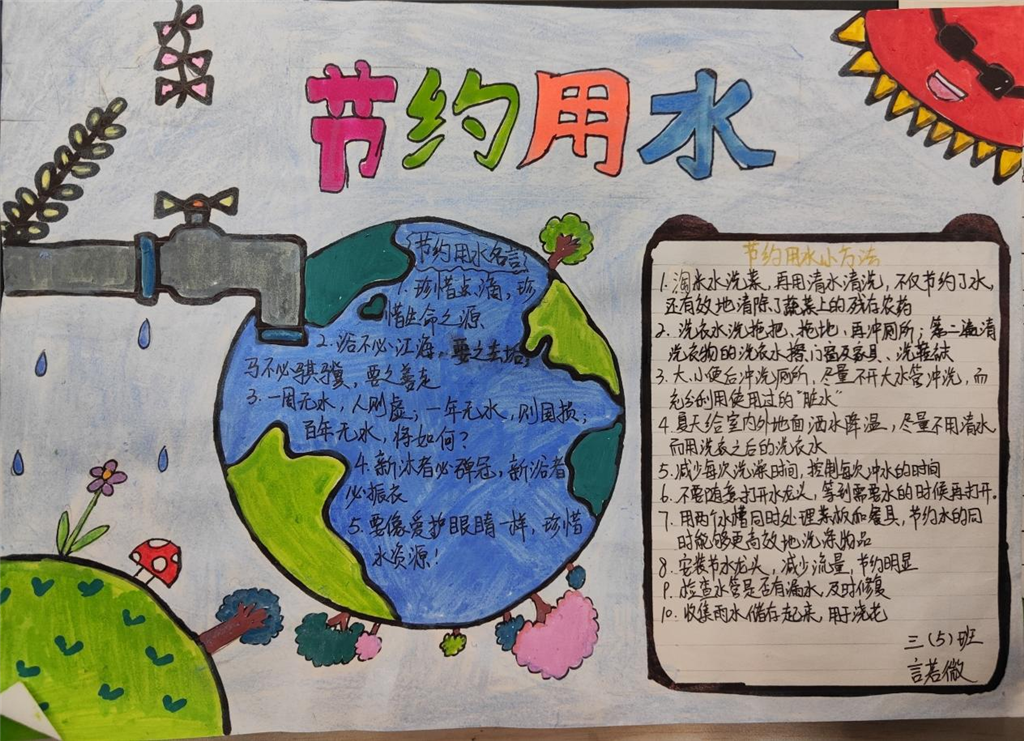 节约用水
节约用水名言
1. 珍惜点滴，珍
惜生命之源
2. 浴不必江海，要之去垢；
马不必骐骥，要之善走
3. 一周无水，人则虚；一年无水，则国损；
百年无水，将如何？
4. 新沐者必弹冠，新浴者
必振衣
5. 要像爱护眼睛一样，珍惜
水资源！
节约用水小方法
1. 淘米水洗菜，再用清水清洗，不仅节约了水，
还有效地清除了蔬菜上的残存农药
2. 洗衣水洗拖把、拖地、再冲厕所；第二遍清
洗衣物的洗衣水擦门窗及家具、洗鞋袜
3. 大、小便后冲洗厕所，尽量不开大水管冲洗，而
充分利用使用过的“脏水”
4. 夏天给室内外地面洒水降温，尽量不用清水，
而用洗衣之后的洗衣水
5. 减少每次洗澡时间，控制每次冲水的时间
6. 不要随意打开水龙头，等到需要水的时候再打开。
7. 用两个水槽同时处理菜板和餐具，节约水的同
时能够更高效地洗涤物品
8. 安装节水龙头，减少流量，节约明显
9. 检查水管是否有漏水，及时修复
10. 收集雨水储存起来，用于浇花
三（5）班
言若微